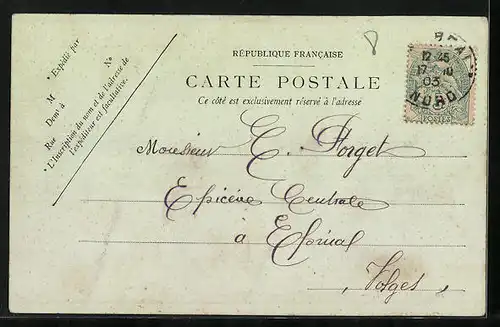 RÉPUBLIQUE FRANÇAISE
CARTE POSTALE
Ce côté est exclusivement réservé à l'adresse
* Expédié par
M
Demt à
Rue No
* L'Inscription du nom et de l'adresse de
l'expéditeur est facultative.
8
12-45
17 10
03
NORD
POSTES
Monsieur E. Forget
Epicérie Centrale
à Epinal
Vosges